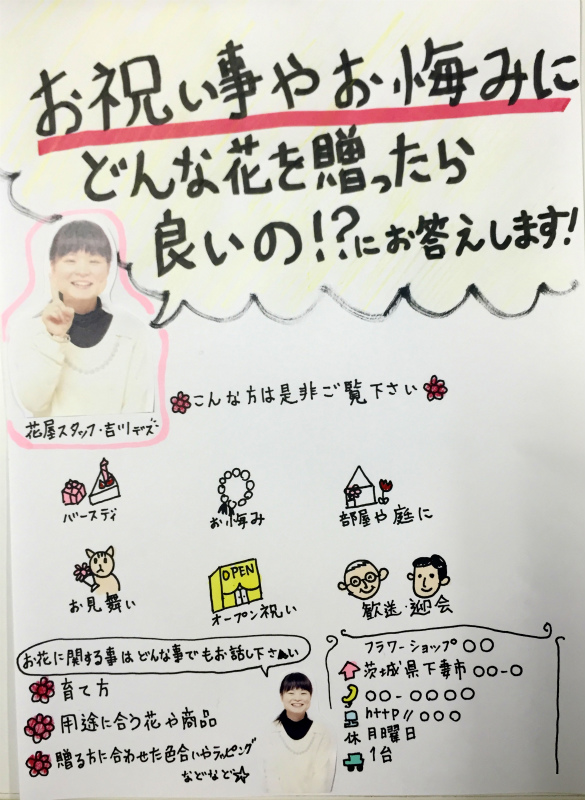 お祝い事やお悔みに
どんな花を贈ったら
良いの!?にお答えします!
花屋スタッフ・吉川デス
こんな方は是非ご覧下さい
バースディ
お悔み
部屋や庭に
お見舞い
OPEN
オープン祝い
歓送・迎会
お花に関する事はどんな事でもお話し下さい
育て方
用途に合う花や商品
贈る方に合わせた色合いやラッピング
などなど☆
フラワーショップ〇〇
茨城県下妻市〇〇-〇
〇〇-〇〇〇〇
http//〇〇〇
休 月曜日
1台